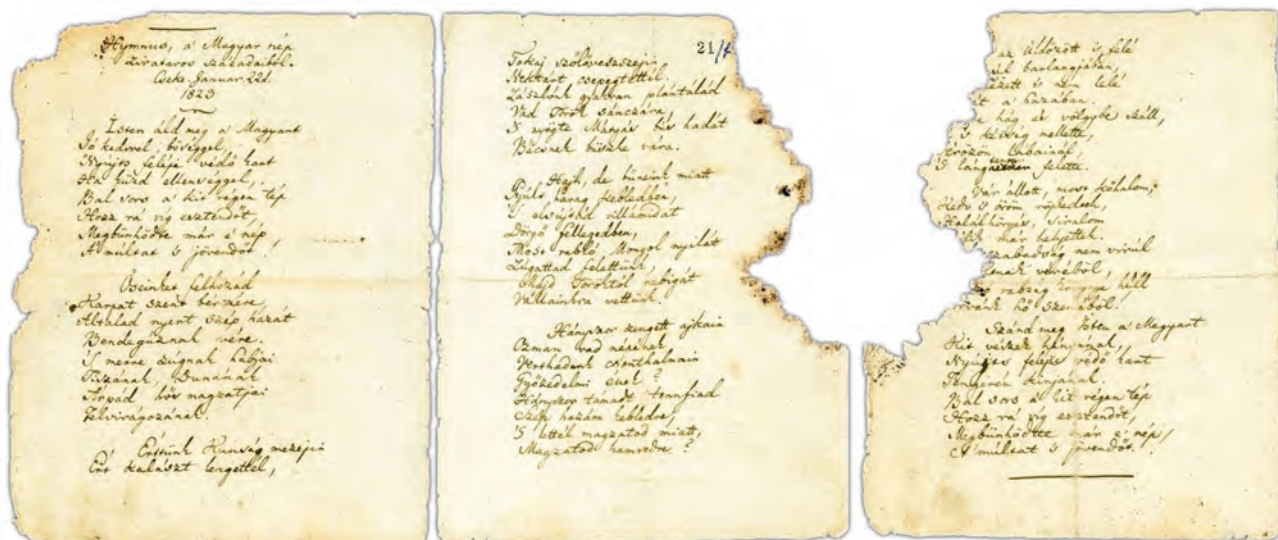 Hymnus, a Magyar nép
zivataros századaiból.
Cseke. Januar. 22d.
1823
Isten áld meg a Magyart
Jó kedvvel, bőséggel,
Nyújts feléje védő kart
Ha küzd ellenséggel,
Bal sors a kit régen tép
Hozz rá víg esztendőt,
Megbűnhődte már e' nép
A' múltat 's jövendőt!
Őseinket felhozád
Kárpát szent bérczére,
Általad nyert szép hazát
Bendegúznak vére.
'S merre zúgnak habjai
Tiszának, Dunának
Árpád hős magzatjai
Felvirágozának.
Értünk Kunság mezejin
Ért kalászt lengettél,
21/4
Tokaj szőlővesszejin
Nektárt csepegtettél.
Zászlónk gyakran plántálád
Vad Török sánczára,
'S nyögte Mátyás bús hadát
Bécsnek büszke vára.
Hajh, de bűneink miatt
Gyúlt harag kebledben,
'S elsújtád villámidat
Dörgő fellegedben,
Most rabló Mongol nyilát
Zúgattad felettünk,
Majd Töröktől rabigát
Vállainkra vettünk.
Hányszor zengett ajkain
Ozman vad népének
Vert hadunk csonthalmain
Győzedelmi ének?
Hányszor támadt tennfiad
Szép hazám kebledre,
'S lettél magzatod miatt,
Magzatod hamvedre?
az üldözött 's felé
barlangjában,
nézett 's nem lelé
a hazában.
hág és völgybe száll,
's kétség mellette,
Vérözön lábainál,
'S lángtenger felette.
Vár állott, most kőhalom,
Kedv 's öröm röpkedtek,
Halálhörgés, siralom
már helyettek.
szabadság nem virúl
véréből,
rabság könnye hull
hő szeméből!
Szánd meg Isten a Magyart
Kit vészek hányának,
Nyújts feléje védő kart
Tengerén kínjának.
Bal sors a kit régen tép
Hozz rá víg esztendőt,
Megbűnhődte már e' nép
A' múltat 's jövendőt!